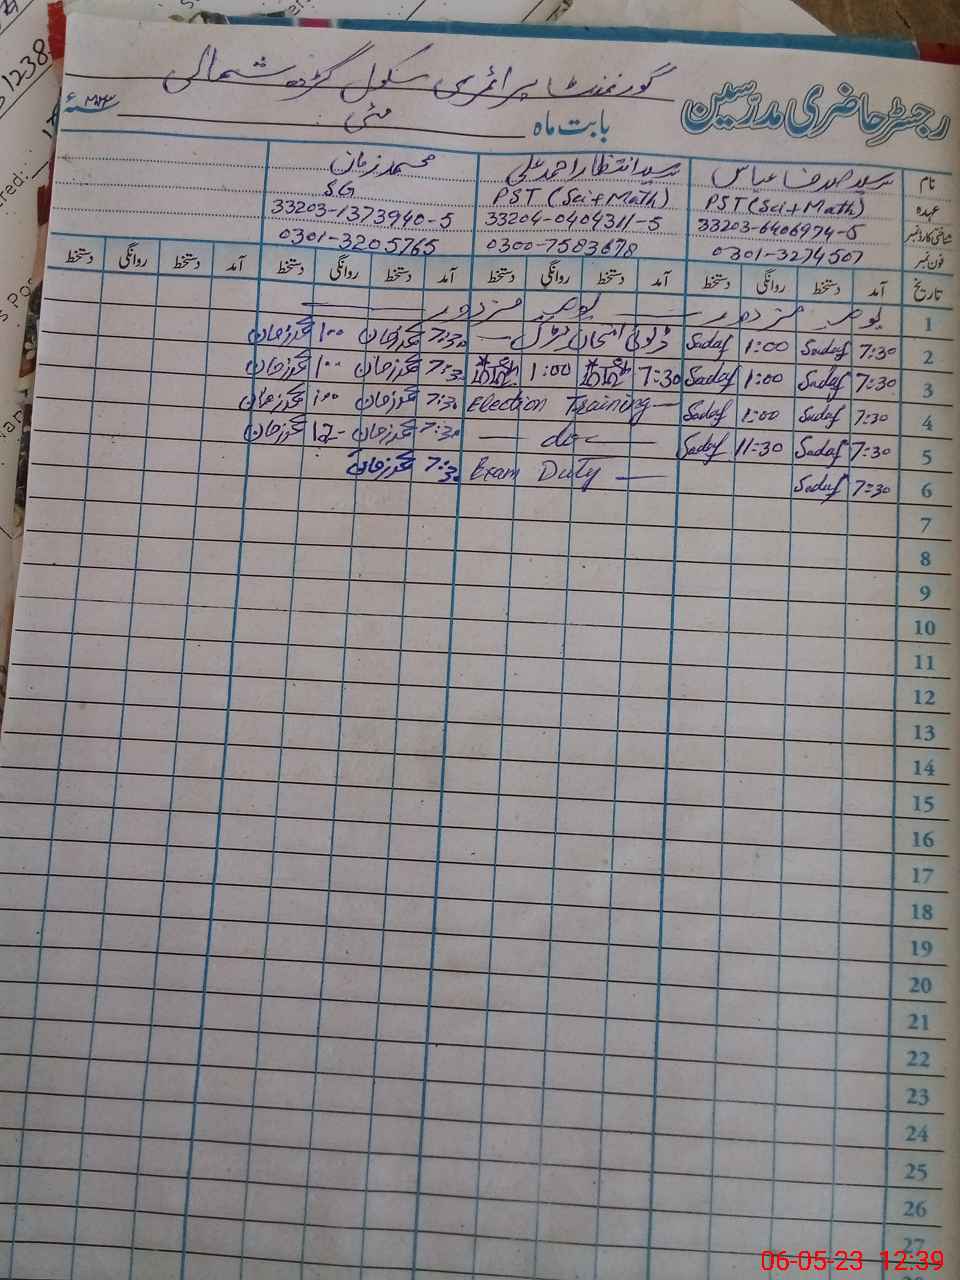 رجسٹر حاضری مدرسین
گورنمنٹ پرائمری سکول گڑھ شمالی
بابت ماہ مئی ۲۰۲۳ء
نام سید صدف عباس سید انتظار احمد علی محمد زمان
عہدہ PST (Sci+Math) PST (Sci+Math) SG
شناختی کارڈ نمبر 33203-6406974-5 33204-0404311-5 33203-1373940-5
فون نمبر 0301-3274507 0300-7583678 0301-3205765
تاریخ آمد دستخط روانگی دستخط آمد دستخط روانگی دستخط آمد دستخط روانگی دستخط آمد دستخط روانگی دستخط
1 یوم مزدور یوم مزدور
2 7:30 Sadaf 1:00 Sadaf ڈیوٹی امتحان 7:30 1:00
3 7:30 Sadaf 1:00 Sadaf 7:30 1:00 7:30 1:00
4 7:30 Sadaf 1:00 Sadaf Election Training 7:30 1:00
5 7:30 Sadaf 11:30 Sadaf do 7:30 12
6 7:30 Sadaf Exam Duty 7:30
7
8
9
10
11
12
13
14
15
16
17
18
19
20
21
22
23
24
25
26
27
1238
ered:
06-05-23 12:39